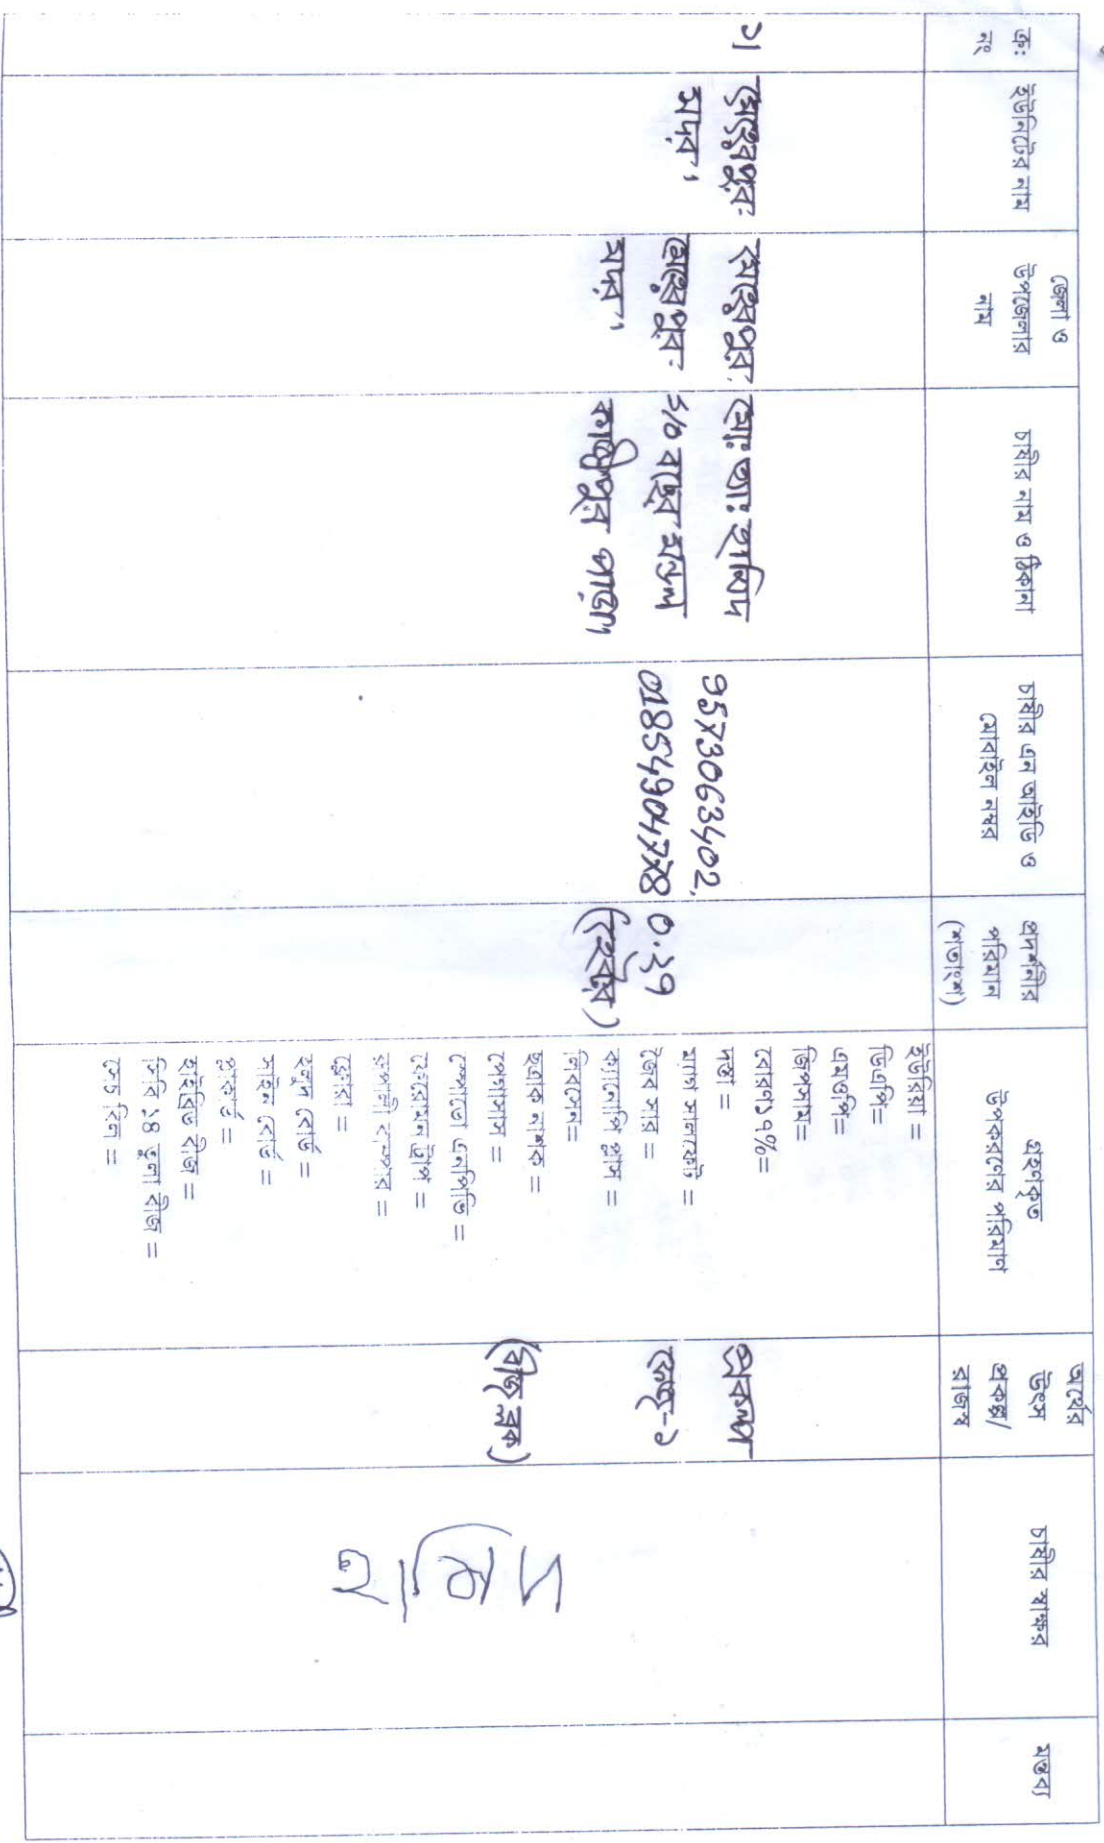 ক্রঃ নং
ইউনিটের নাম
জেলা ও
উপজেলার
নাম
চাষীর নাম ও ঠিকানা
চাষীর এন আইডি ও
মোবাইল নম্বর
প্রদর্শনীর
পরিমান
(শতাংশ)
গ্রহনকৃত
উপকরনের পরিমাণ
অর্থের
উৎস
প্রকল্প/
রাজস্ব
চাষীর স্বাক্ষর
মন্তব্য
১।
মেহেরপুর-
সদর।
মেহেরপুর,
মেহেরপুর-
সদর।
মোঃ আঃ হামিদ
S/O বাহের মন্ডল
9573063402,
01854904778
0.২৭
(হেক্টর)
ইউরিয়া =
টিএসপি=
এমওপি=
জিপসাম=
বোরণ১৭%=
দস্তা =
ম্যাগ সালফেট =
জৈব সার =
ক্যানোপি প্লাস =
লিবসেন=
ছত্রাক নাশক =
পেগাসাস =
স্পোডো এনপিভি =
ফেরোমন ট্রাপ =
রূপালী বাম্পার =
ফ্লোরা =
হলুদ বোর্ড =
সাইন বোর্ড =
প্লাকার্ড =
হাইব্রিড বীজ =
সিবি ১৪ তুলা বীজ =
প্রকল্প
ফেজ-১
(বীজ ব্লক)